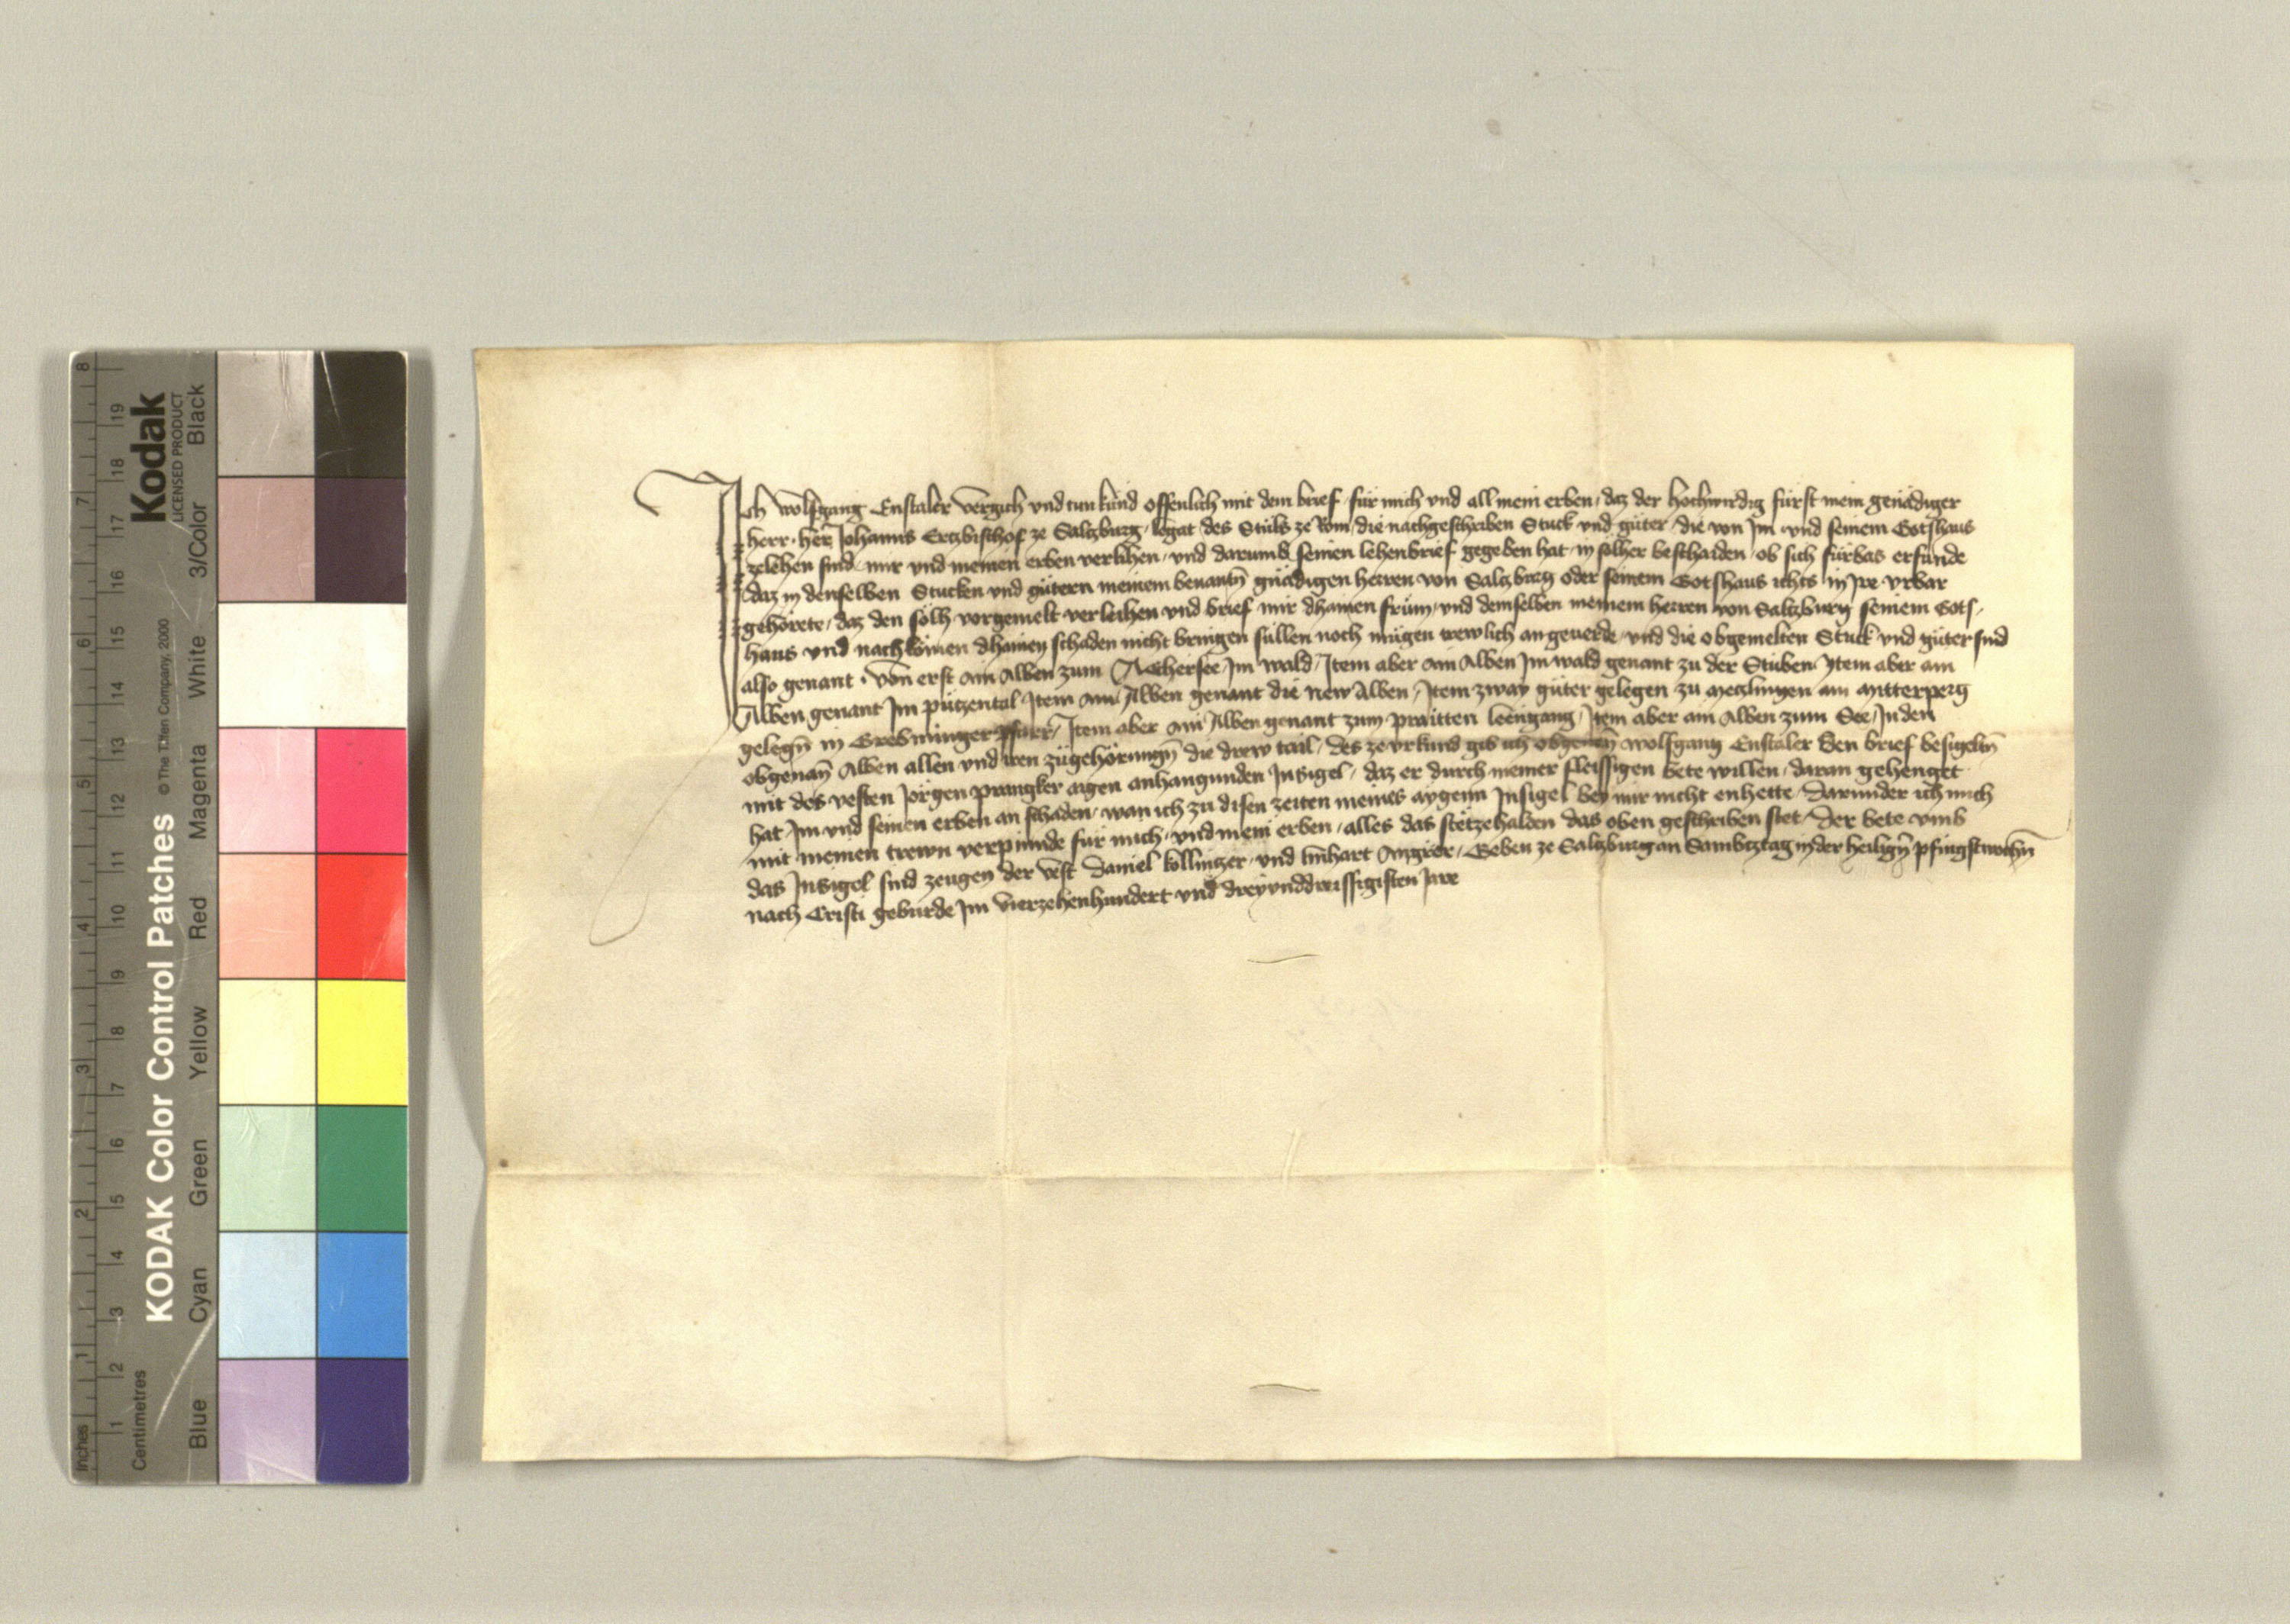 Ich wolfgang Enstaler vergich vnd tun kund offenlich mit dem brief für mich vnd all mein erben, daz der hochwirdig fürst mein genädiger
herr, her Johanns Ertzbischof ze Saltzburg, legat des Stůls ze Rom, die nachgeschriben Stuck vnd güter, die von Im vnd seinem Gotshaus
zelehen sind, mir vnd meinen erben verlihen, vnd darumb seinen lehenbrief gegeben hat, in solher beschaiden, ob sich fürbas erfunde
daz in denselben Stucken vnd gütern meinem benantn̄ gnädigen herren von Saltzburg oder seinem Gotshaus ichts in Ire vrbar
gehörete, daz den solh vorgemelt verleihen vnd brief mir dhainen frum, vnd demselben meinem herren von Saltzburg seinem Gots,
haus vnd nachkomen dhainen schaden nicht bringen süllen noch mügen trewlich angeuerde, vnd die obgemelten Stuck vnd güter sind
also genant, von erst ain Alben zum Aechersee Im wald, Item aber ain Alben Im wald genant zu der Stuben, Item aber ain
Alben genant Im pützental, Item ain Alben genant die new Alben, Item zway güter gelegen zu Metzlingen am Mitterperg
gelegn̄ in Grebminger Pfarr, Item aber ain Alben genant zum praitten leengang, Item aber ain Alben zum See, In den
obgenan̄ Alben allen vnd iren zügehörungn̄ die drew tail, des ze vrkund gib ich obgenan̄ wolfgang Enstaler den brief besigeltn̄
mit des vesten Jörgen prangker aigen anhangunden Insigel, daz er durch meiner fleissigen bete willen, daran gehenget
hat, Im vnd seinen erben an schaden, wan ich zu disen zeiten meines aygenn Insigel bey mir nicht enhette, Darunder ich mich
mit meinen trewn verpinnde für mich, vnd mein erben, alles das stet zehalden das oben geschriben stet, Der bete vmb
das Insigel sind zeugen der vest Daniel köllnitzer, vnd linhart Angrer, Geben ze Saltzburg an Sambtztag in der heilign̄ pfingstwochn̄
nach Cristi geburde Im vierzehenhundert vnd dreyunddreissigisten Jare
KODAK Color Control Patches
© The Tiffen Company, 2000
Kodak
LICENSED PRODUCT
Blue
Cyan
Green
Yellow
Red
Magenta
White
3/Color
Black
Inches
1
2
3
4
5
6
7
8
Centimetres
1
2
3
4
5
6
7
8
9
10
11
12
13
14
15
16
17
18
19